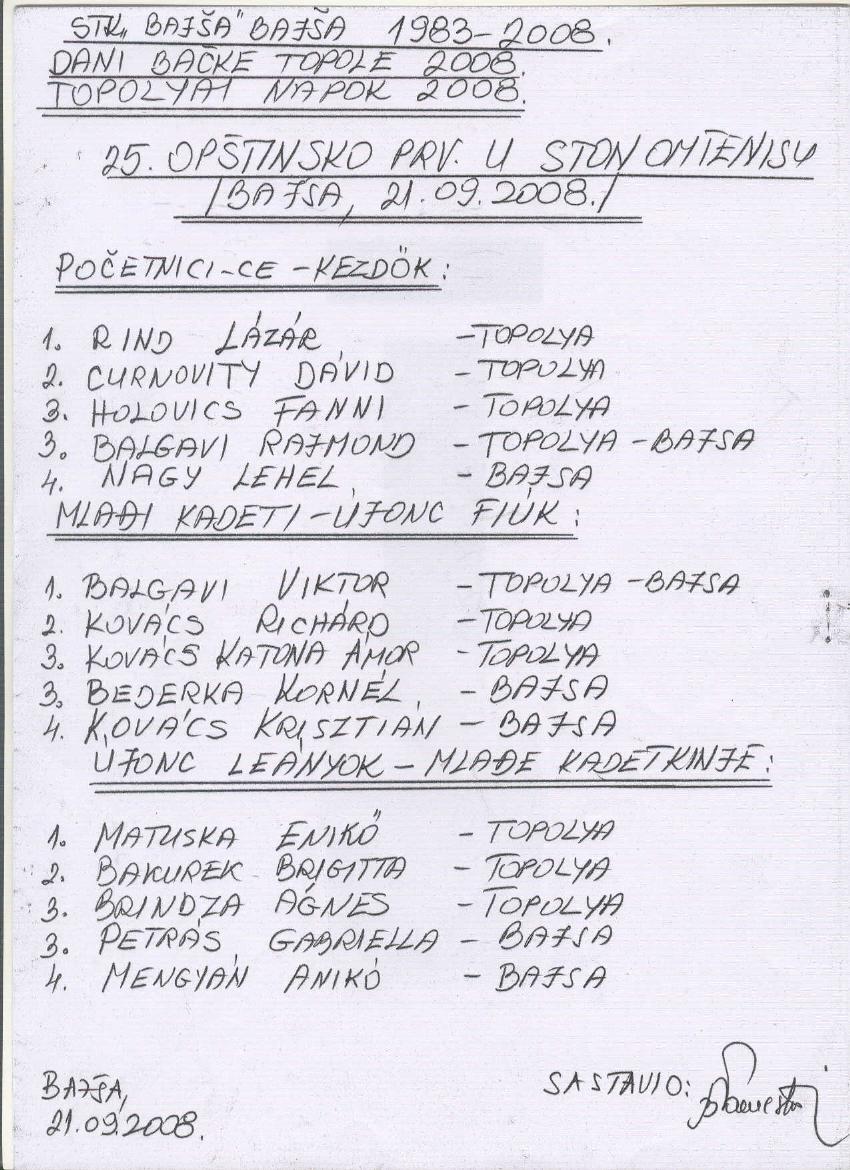 STK „BAJŠA" BAJŠA 1983-2008.
DANI BAČKE TOPOLE 2008.
TOPOLYAI NAPOK 2008.
25. OPŠTINSKO PRV. U STONOMTENISU
/BAJSA, 21.09.2008./
POČETNICI-CE - KEZDÖK:
1. RIND LÁZÁR -TOPOLYA
2. CURNOVITY DÁVID - TOPOLYA
3. HOLOVICS FANNI - TOPOLYA
3. BALGAVI RAJMOND - TOPOLYA -BAJSA
4. NAGY LEHEL - BAJSA
MLAĐI KADETI - ÚJONC FIÚK:
1. BALGAVI VIKTOR - TOPOLYA -BAJSA
2. KOVÁCS RICHÁRD - TOPOLYA
3. KOVÁCS KATONA ÁMOR - TOPOLYA
3. BEDERKA KORNÉL - BAJSA
4. KOVÁCS KRISZTIÁN - BAJSA
ÚJONC LEÁNYOK - MLAĐE KADETKINJE:
1. MATUSKA ENIKŐ - TOPOLYA
2. BAKUREK BRIGITTA - TOPOLYA
3. BRINDZA ÁGNES - TOPOLYA
3. PETRÁS GABRIELLA - BAJSA
4. MENGYÁN ANIKÓ - BAJSA
BAJŠA,
21.09.2008.
SASTAVIO: